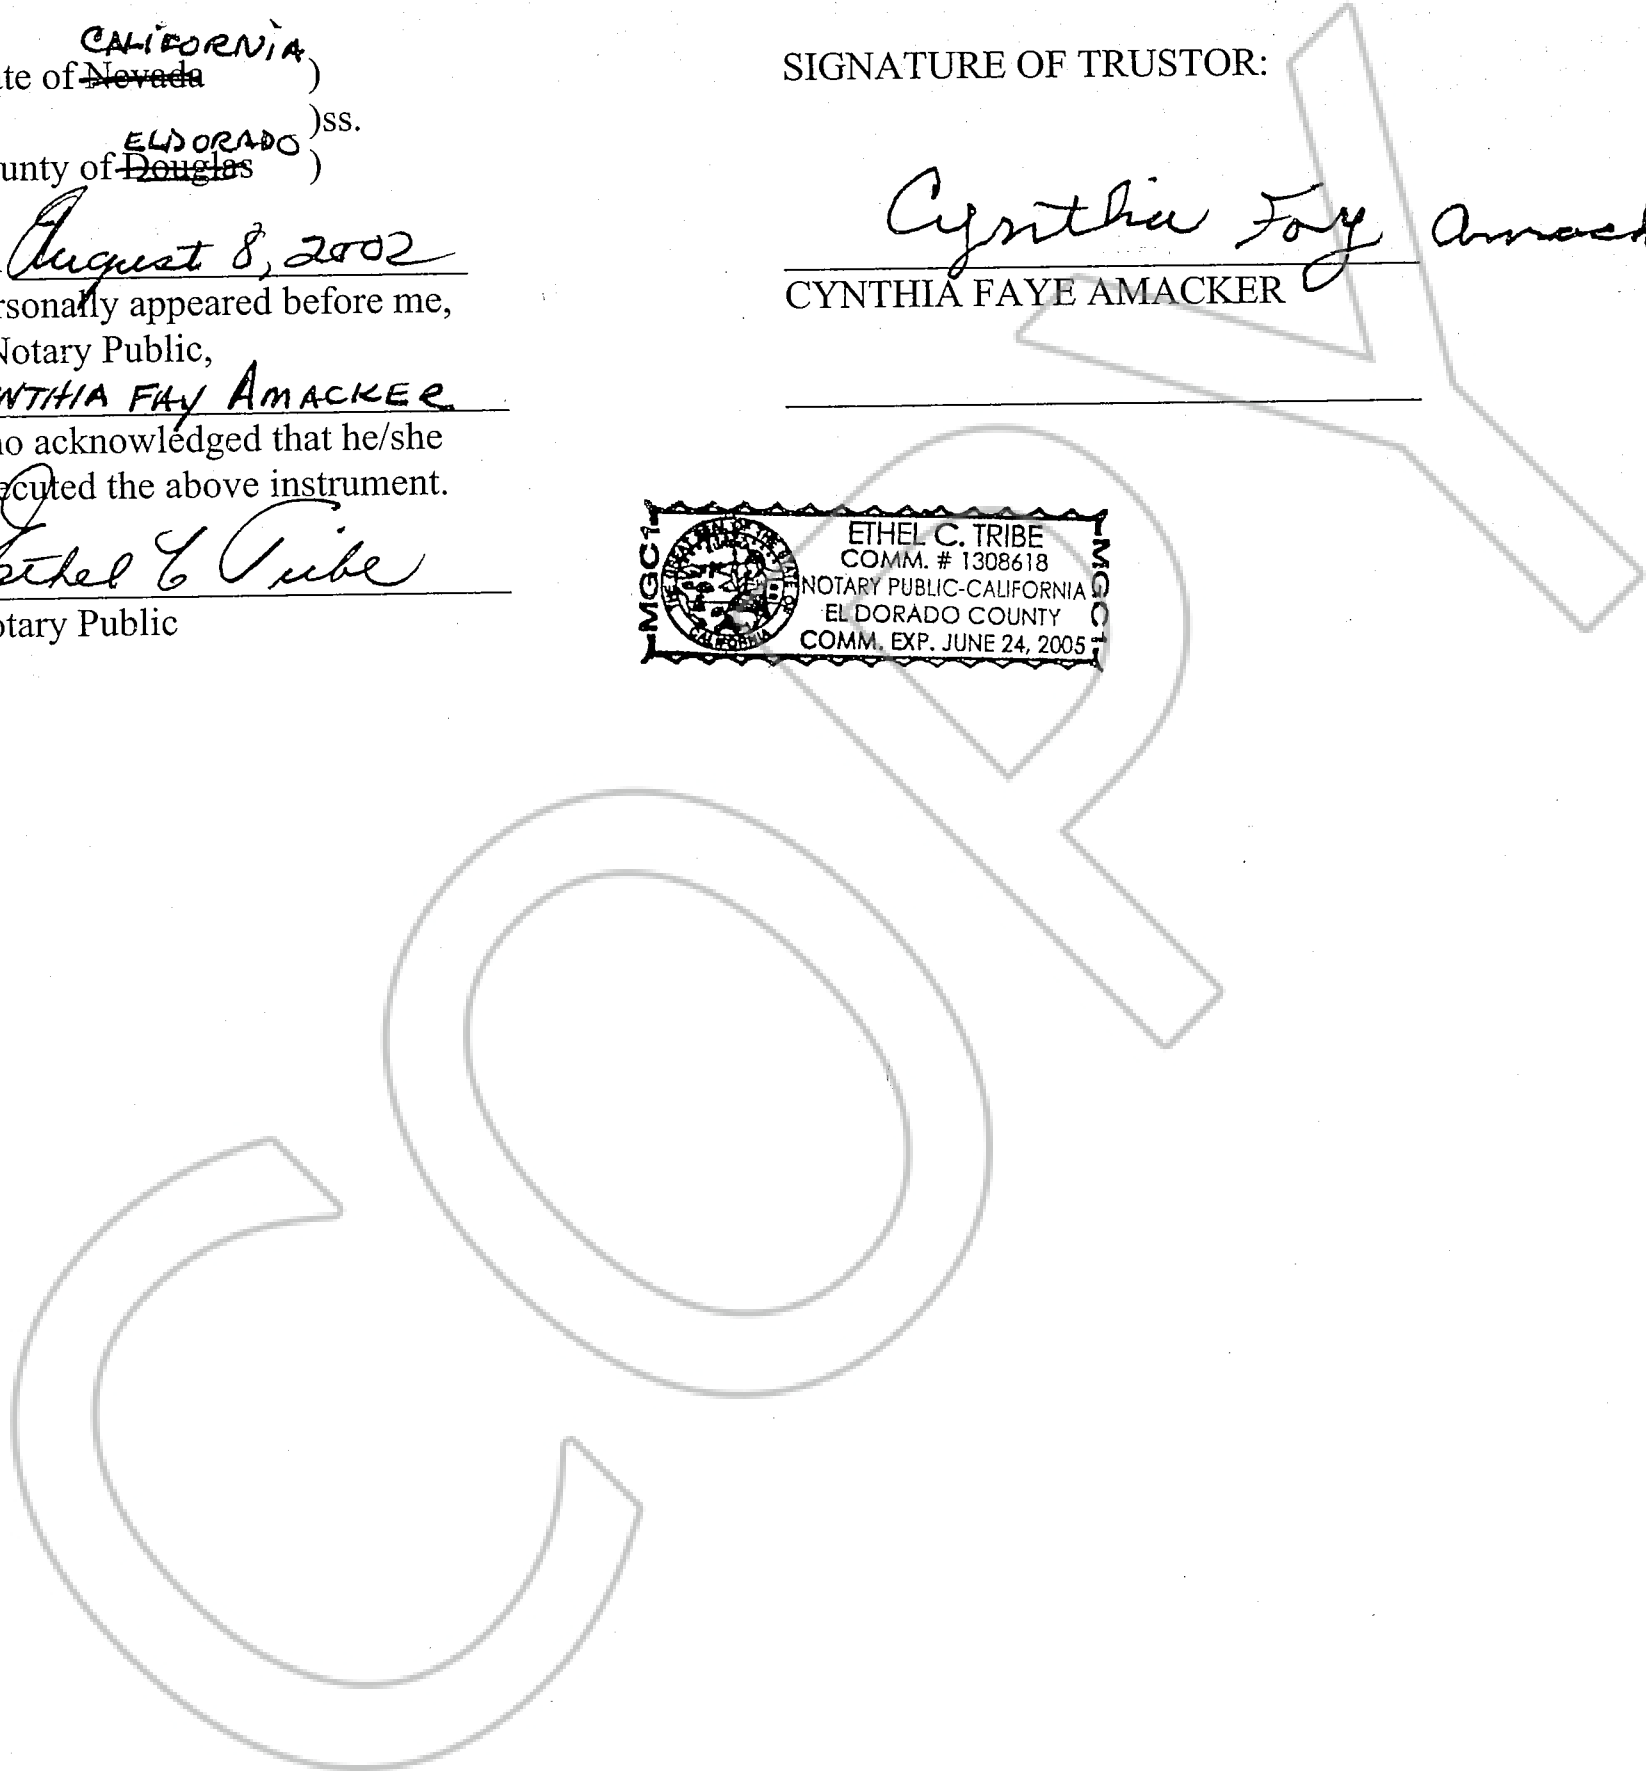 CALIFORNIA
te of Nevada )
)ss.
ELDORADO
unty of Douglas )
August 8, 2002
rsonally appeared before me,
Notary Public,
NTHIA FAY AMACKER
no acknowledged that he/she
ecuted the above instrument.
Ethel C Tribe
otary Public
SIGNATURE OF TRUSTOR:
Cynthia Fay Amack
CYNTHIA FAYE AMACKER
MGC1
THE GREAT SEAL OF THE STATE OF
CALIFORNIA
ETHEL C. TRIBE
COMM. # 1308618
NOTARY PUBLIC-CALIFORNIA
EL DORADO COUNTY
COMM. EXP. JUNE 24, 2005
MGC1
COPY